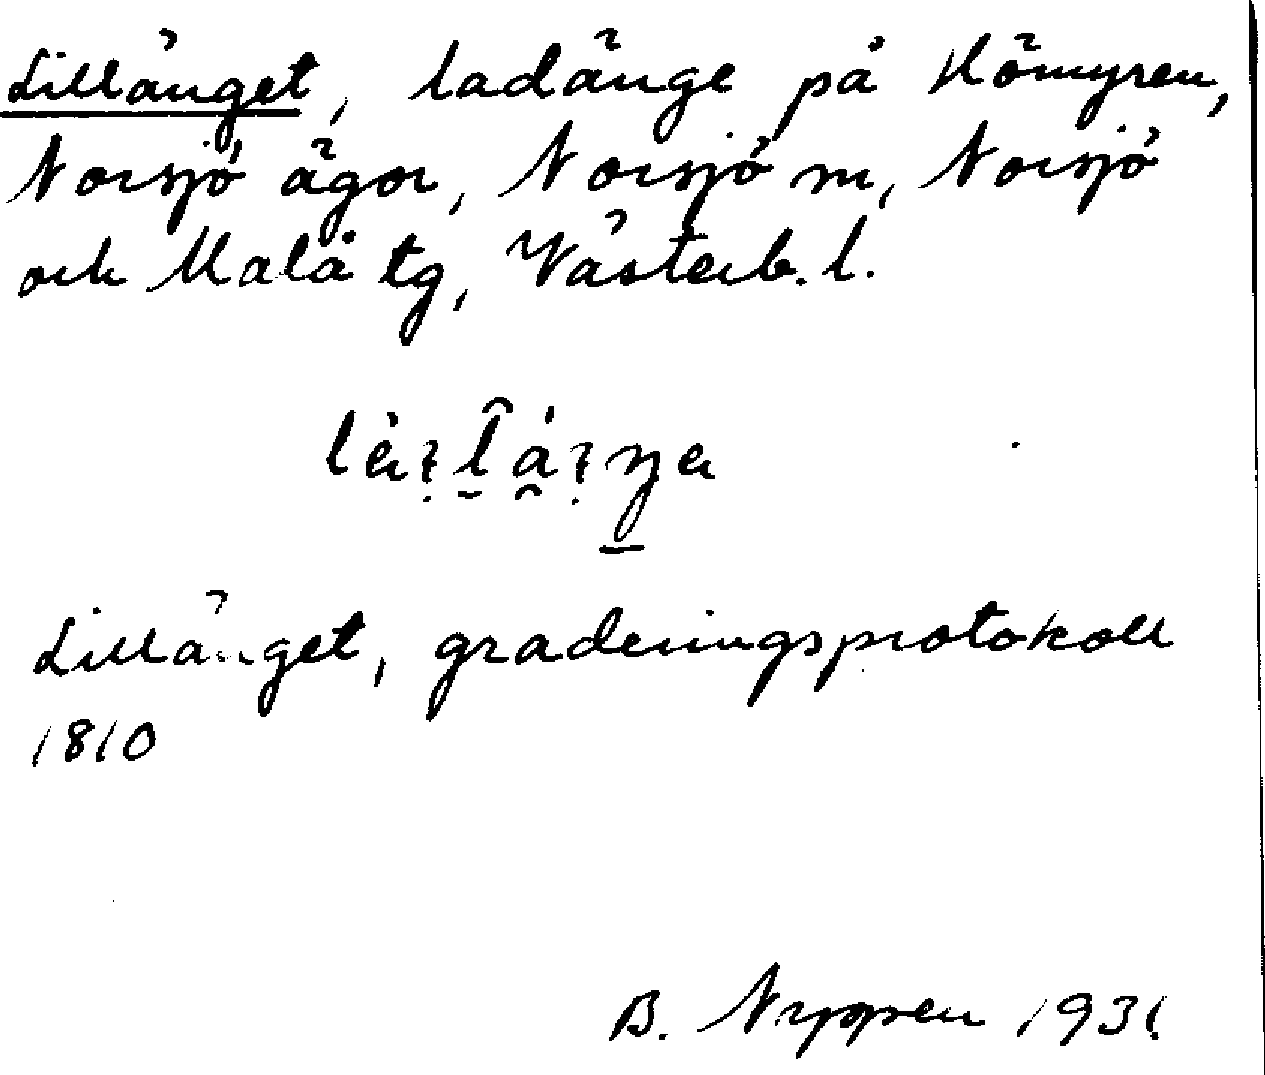 Lillänget, ladänge på Hömyren,
Norsjö ägor, Norsjö sn, Norsjö
och Malå tg, Västerb. l.
Lillänget, graderingsprotokoll
1810
B. Nyppen 1931.